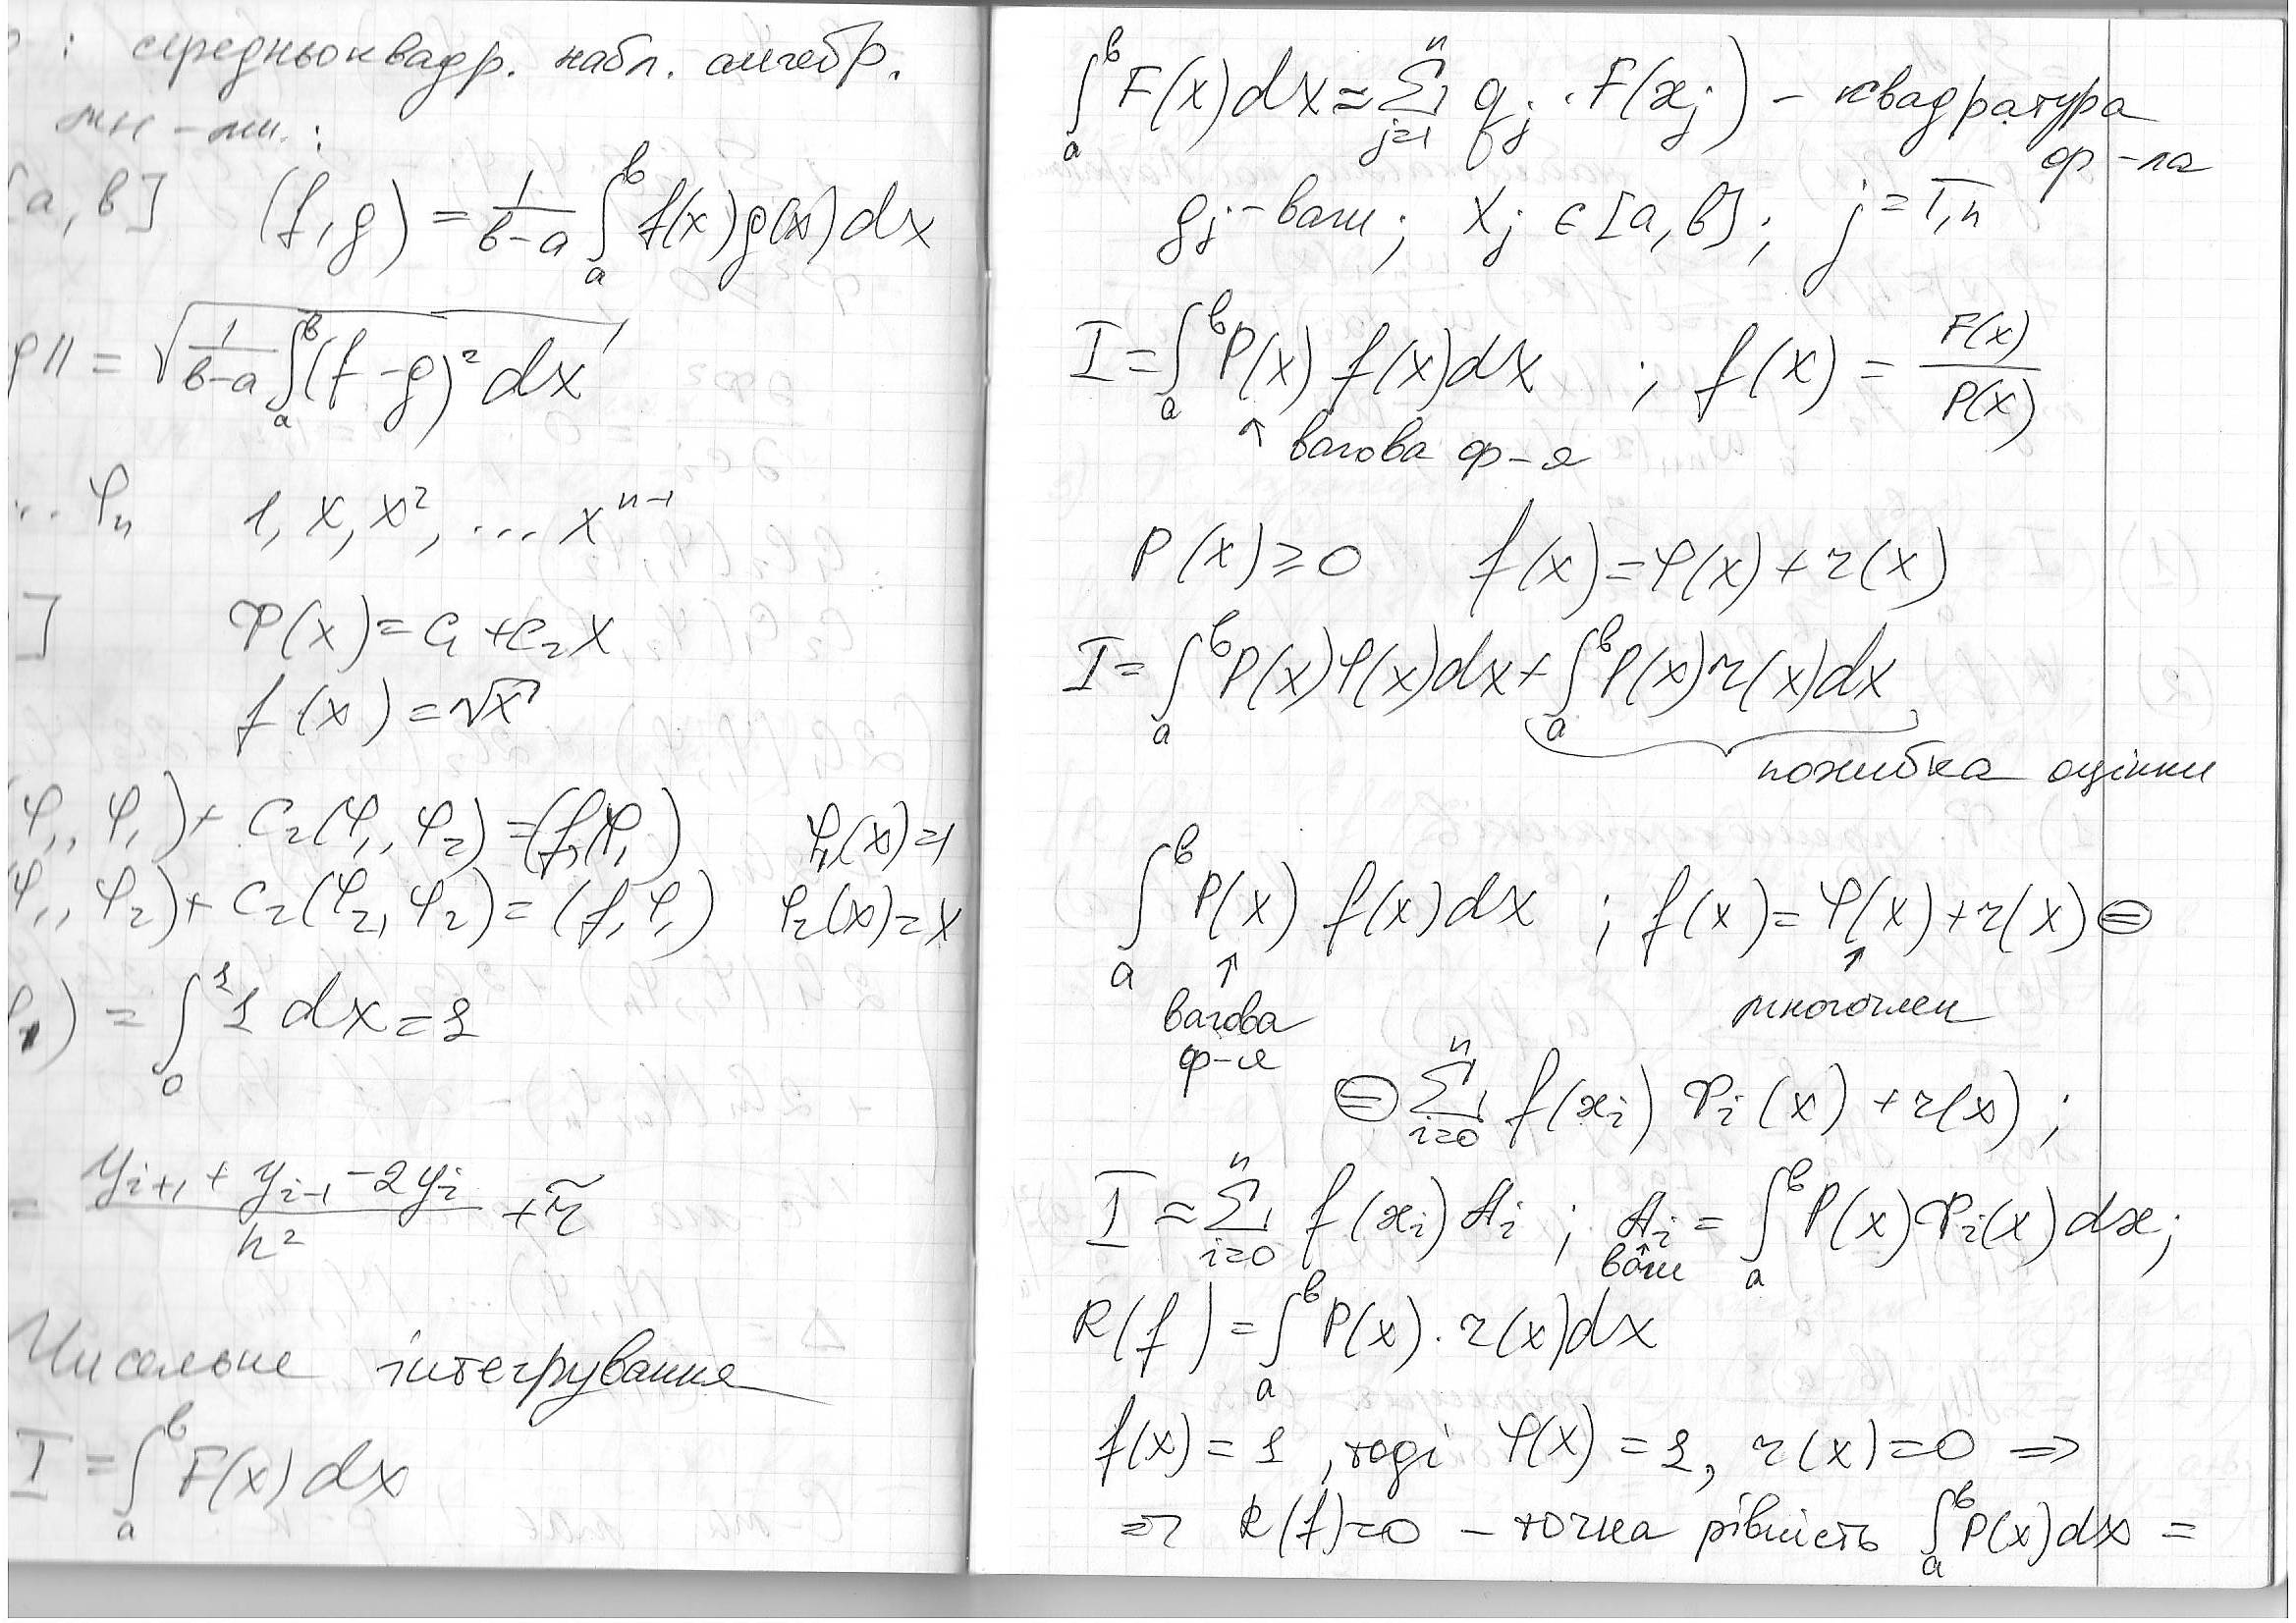 : середньоквадр. набл. алгебр.
мн-ми.:
[a, b] (f, g) = 1/(b-a) ∫_a^b f(x)g(x)dx
g|| = √(1/(b-a) ∫_a^b (f-g)² dx)
... φ_n 1, x, x², ... x^(n-1)
] Φ(x) = c₁ + c₂x
f(x) = √x
φ₁, φ₁) + c₂(φ₁, φ₂) = (f, φ₁) φ₁(x) = 1
φ₁, φ₂) + c₂(φ₂, φ₂) = (f, φ₁) φ₂(x) = x
φ₁) = ∫_0^1 1 dx = 1
= (y_{i+1} + y_{i-1} - 2y_i)/h² + r̃
Чисельне інтегрування
I = ∫_a^b F(x)dx
∫_a^b F(x)dx ≈ Σ_{j=1}^n q_j · F(x_j) – квадратура
ф-ла
q_j – ваги; x_j ∈ [a, b]; j = 1,n
I = ∫_a^b P(x) f(x)dx ; f(x) = F(x)/P(x)
↑ вагова ф-я
P(x) ≥ 0 f(x) = φ(x) + r(x)
I = ∫_a^b P(x)φ(x)dx + ∫_a^b P(x)r(x)dx
похибка оцінки
∫_a^b P(x) f(x)dx ; f(x) = φ(x) + r(x) ⊜
↑ ↑
вагова многочлен
ф-я
⊜ Σ_{i=0}^n f(x_i) Φ_i(x) + r(x) ;
I ≈ Σ_{i=0}^n f(x_i) A_i ; A_i = ∫_a^b P(x)Φ_i(x)dx;
↑
ваги
R(f) = ∫_a^b P(x) · r(x)dx
f(x) = 1 , тоді φ(x) = 1, r(x) = 0 ⇒
⇒ R(f) = 0 – точна рівність ∫_a^b P(x)dx =